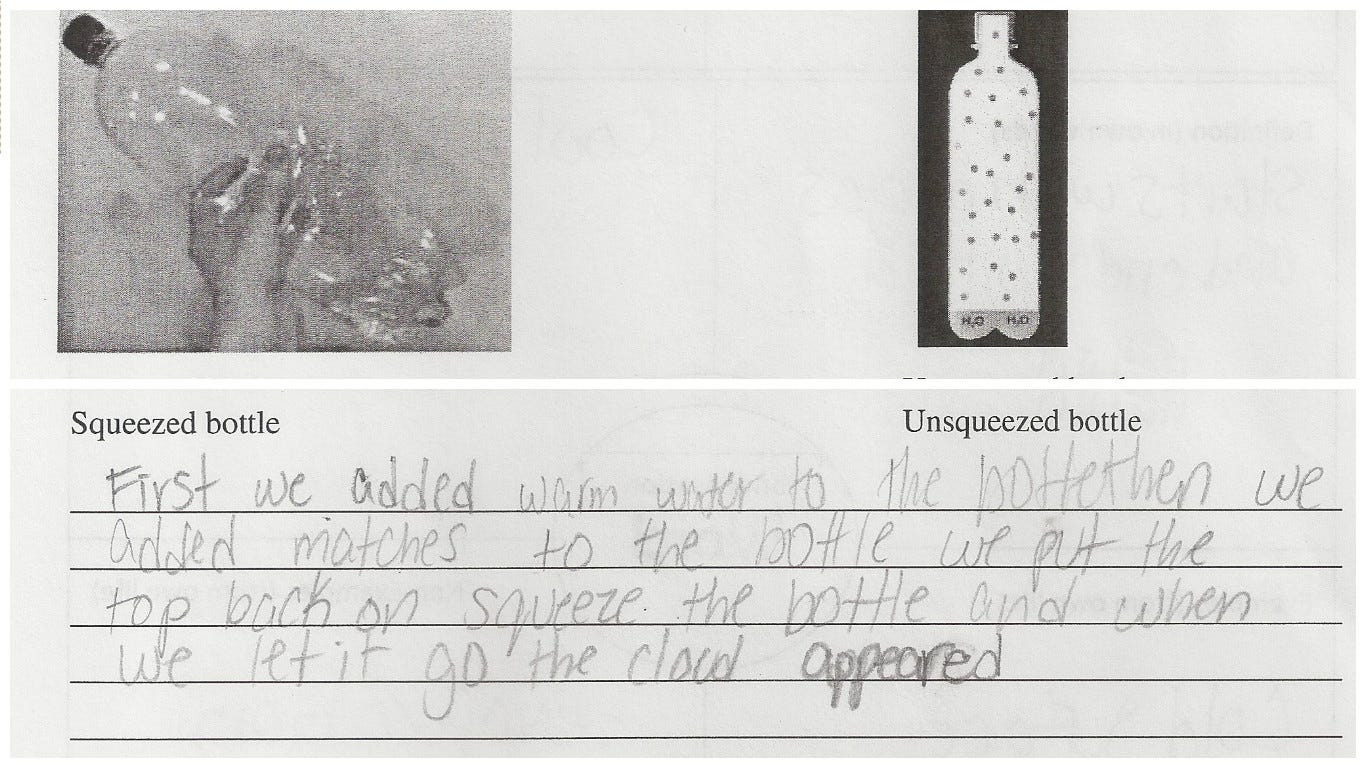 H₂O H₂O
Squeezed bottle Unsqueezed bottle
First we added warm water to the bottle then we
added matches to the bottle we put the
top back on squeeze. the bottle and when
we let it go the cloud appeared